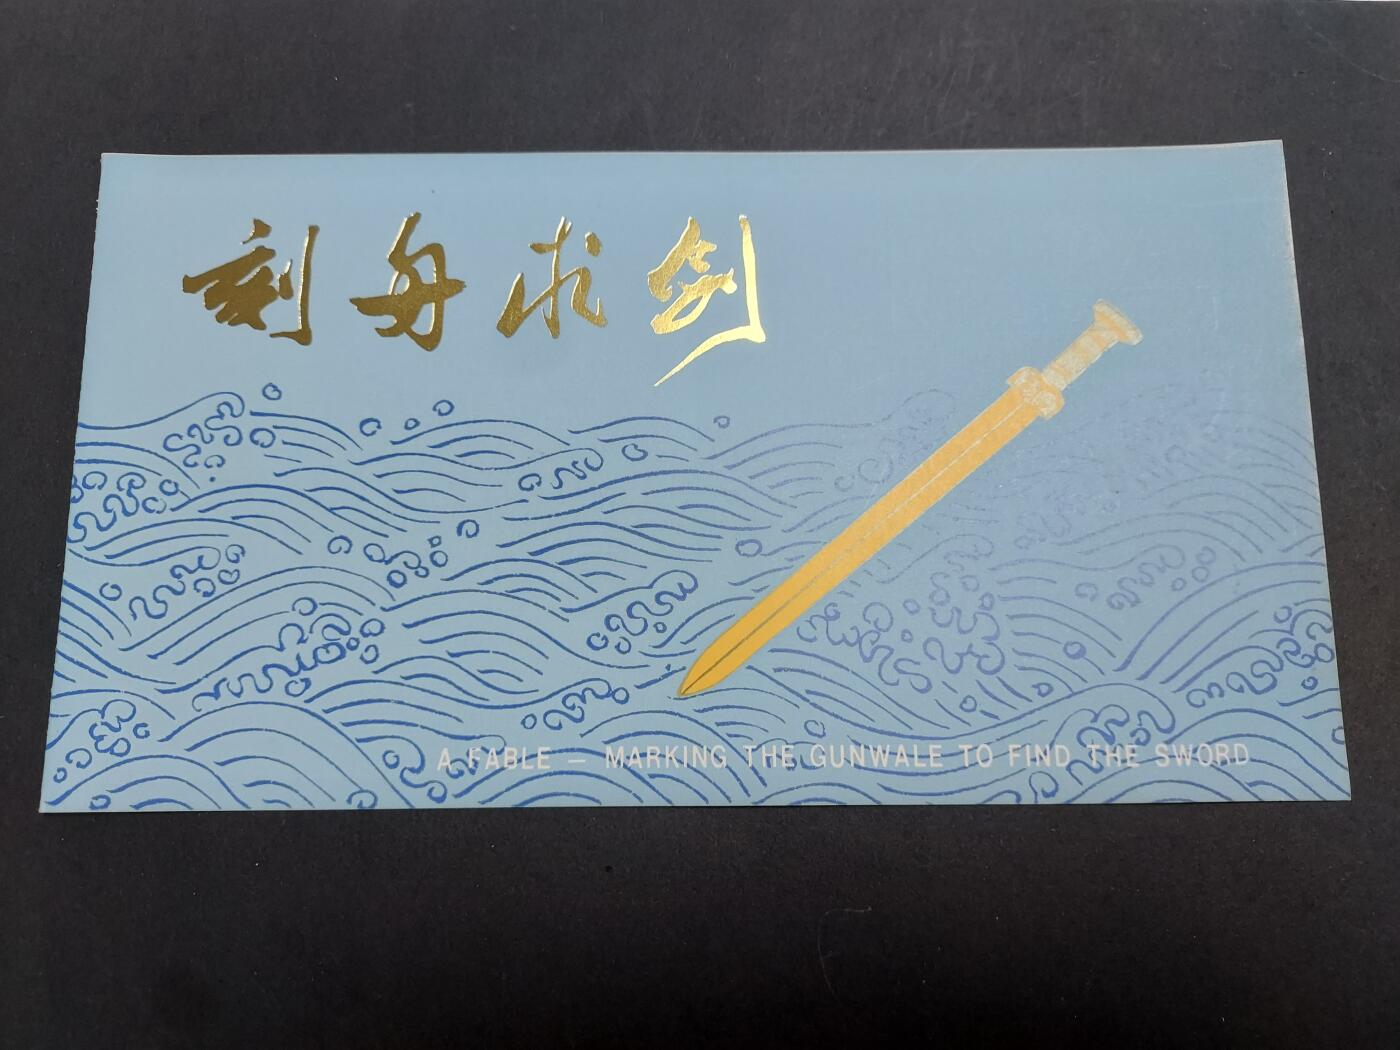 刻舟求剑
A FABLE — MARKING THE GUNWALE TO FIND THE SWORD